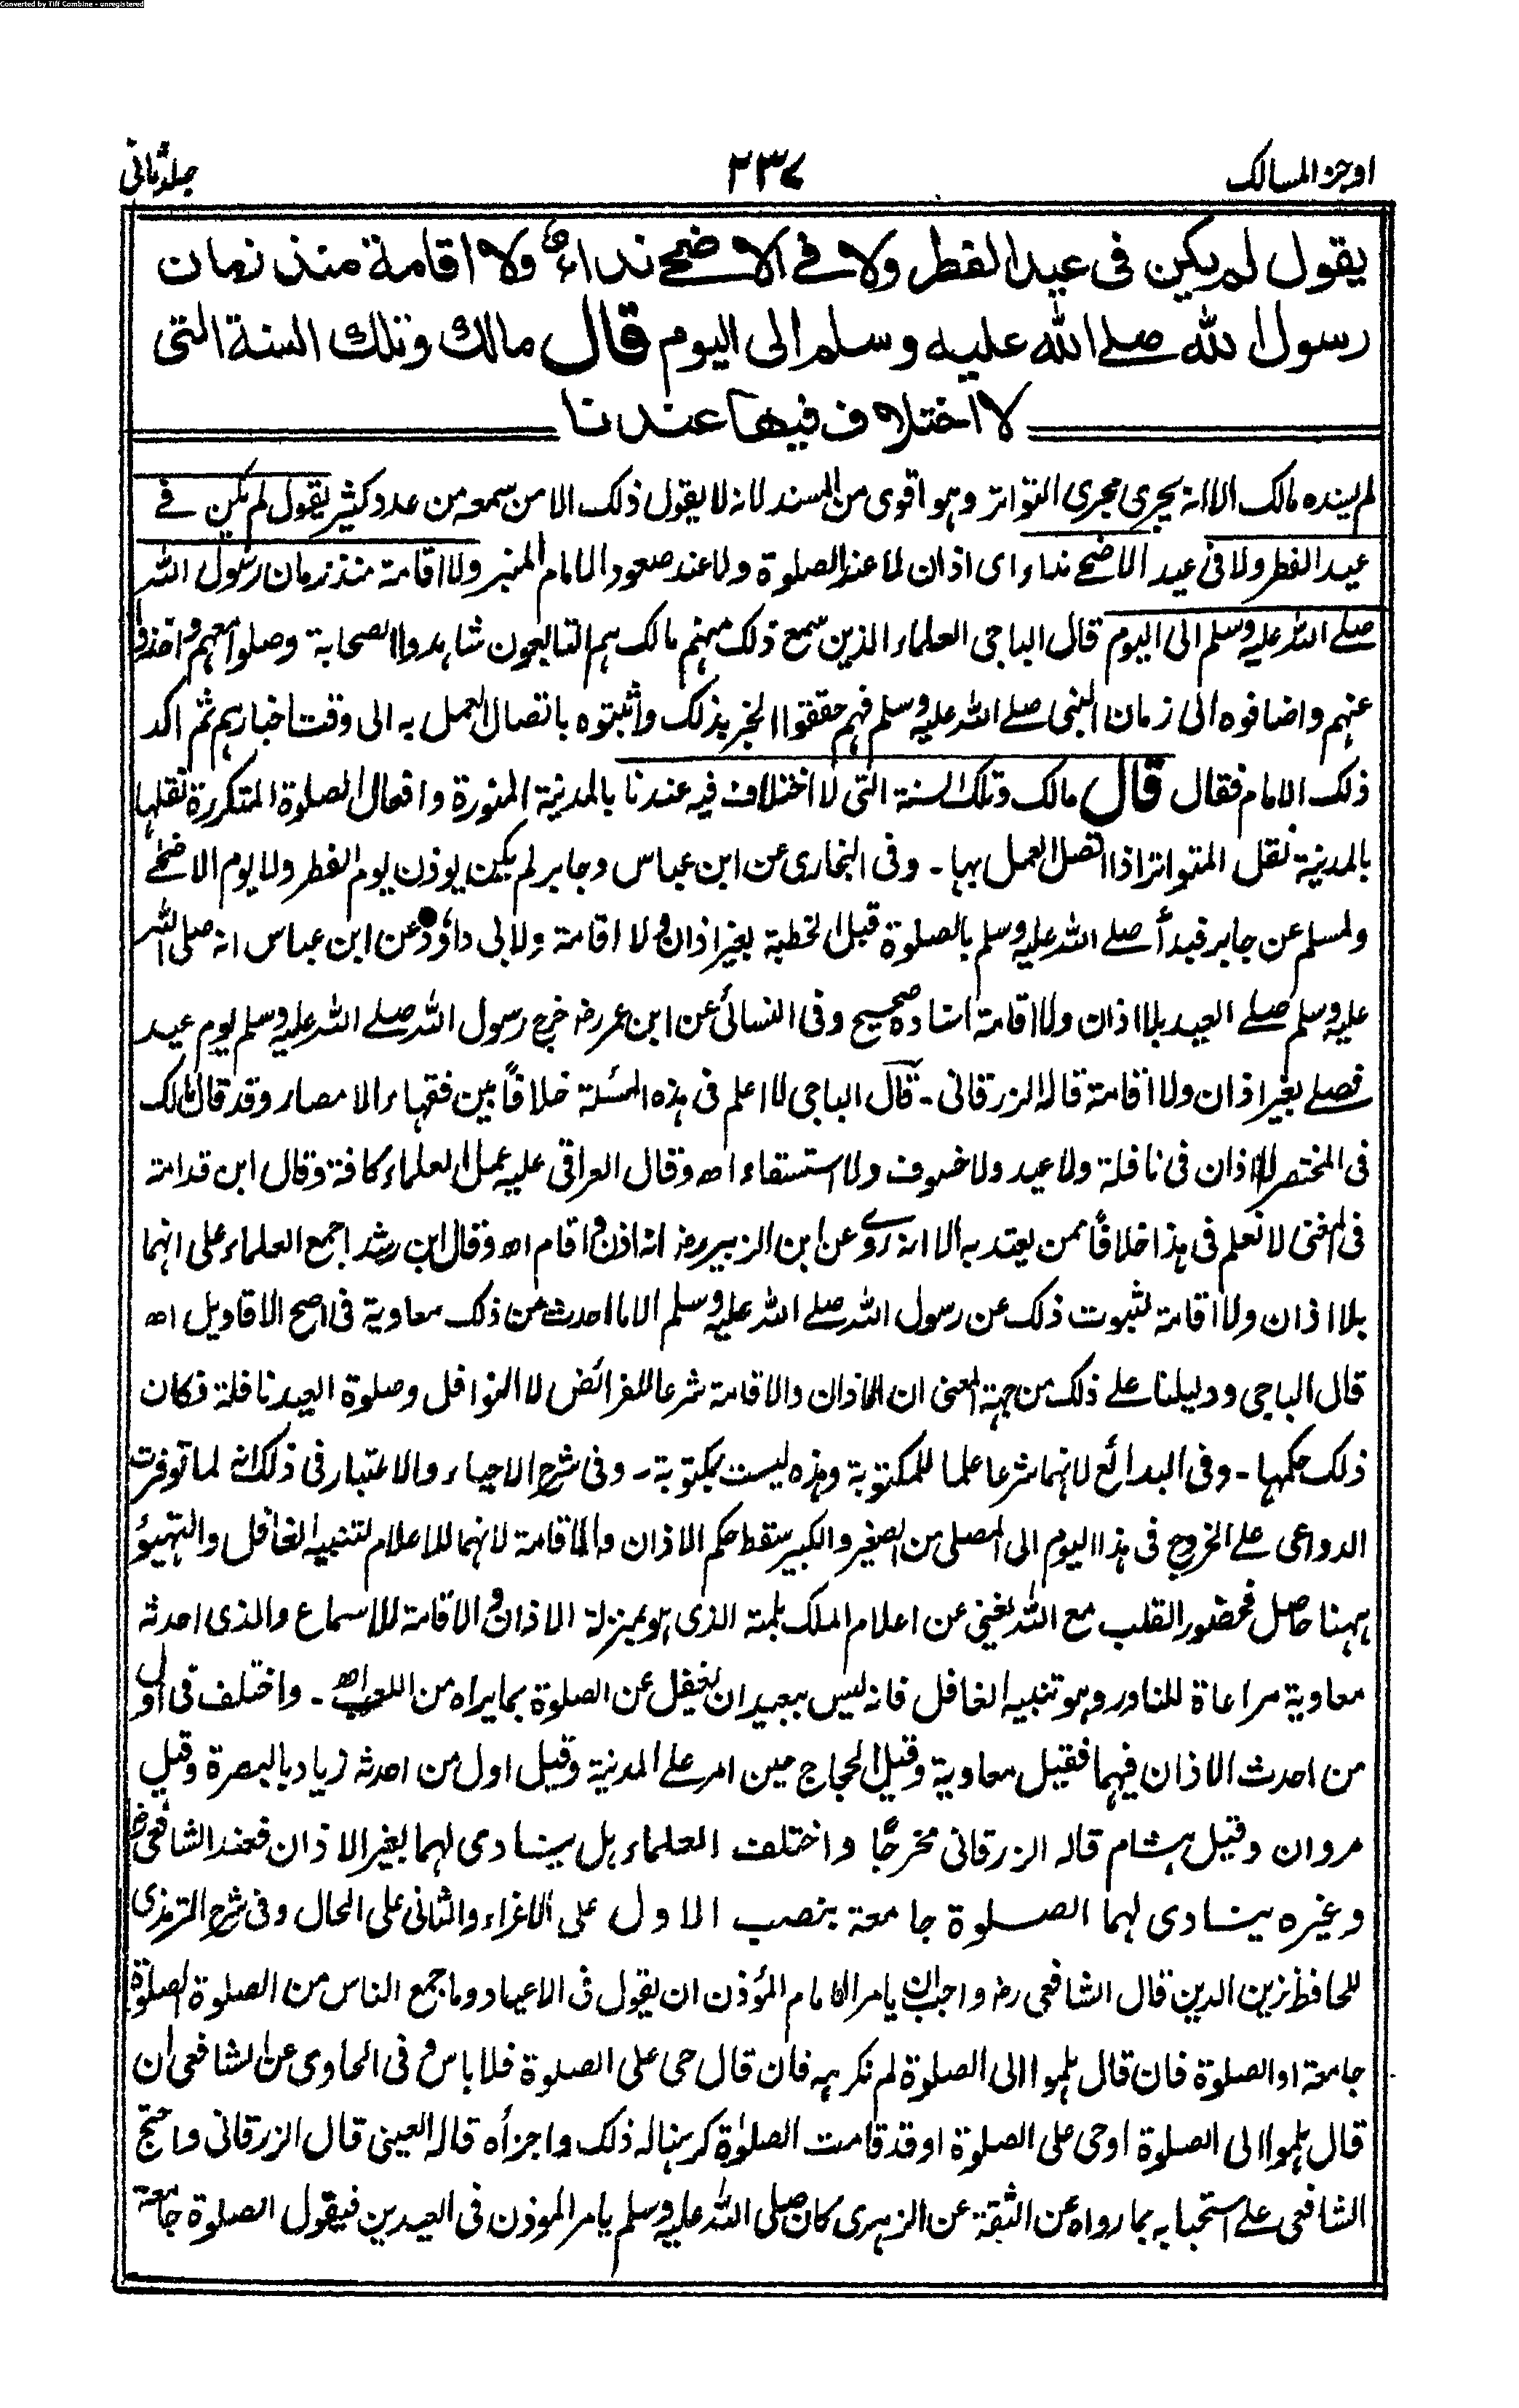 Converted by Tiff Combine - unregistered
اوجز المسالك ٢٣٧ جلد ثانی
يقول لم يكن فى عيد الفطر ولا فے الاضحے نداء ولا اقامة منذ زمان
رسول الله صلے الله عليه وسلم الى اليوم قال مالك وتلك السنة التى
لا اختلاف فيها عندنا
لم يسنده مالك الا انه يجرى مجرى التواتر وهو اقوى من المسند لانه لا يقول ذلك الا من سمعه من عدد كثير يقول لم يكن فے
عيد الفطر ولا فى عيد الاضحے نداء اى اذان لا عند الصلوة ولا عند صعود الامام المنبر ولا اقامة منذ زمان رسول الله
صلے الله عليه وسلم الى اليوم قال الباجى العلماء الذين سمع ذلك منهم مالك هم التابعون شاهدوا الصحابة وصلوا معهم واخذوا
عنهم واضافوه الى زمان النبى صلے الله عليه وسلم فهم حققوا الخبر بذلك وأثبتوه باتصال العمل به الى وقت اخبارهم ثم اكد
ذلك الامام فقال قال مالك وتلك السنة التى لا اختلاف فيه عندنا بالمدينة المنورة وافعال الصلوة المتكررة نقلها
بالمدينة نقل المتواتر اذا اتصل العمل بها ۔ وفى البخارى عن ابن عباس وجابر لم يكن يوذن يوم الفطر ولا يوم الاضحے
ولمسلم عن جابر فبدأ صلے الله عليه وسلم بالصلوة قبل الخطبة بغير اذان ولا اقامة ولابى داؤد عن ابن عباس انه صلى الله
عليه وسلم صلے العيد بلا اذان ولا اقامة اسناده صحيح وفى النسائى عن ابن عمر رضـ خرج رسول الله صلے الله عليه وسلم يوم عيد
فصلے بغير اذان ولا اقامة قاله الزرقانى ۔ قال الباجى لا اعلم فى هذه المسئلة خلافًا بين فقهاء الامصار وقد قال مالك
فى المختصر لا اذان فى نافلة ولا عيد ولا خسوف ولا استسقاء اھ وقال العراقى عليه عمل العلماء كافة وقال ابن قدامة
فى المغنى لا نعلم فى هذا خلافًا ممن يعتد به الا انه روے عن ابن الزبير رضـ انه اذن و اقام اھ وقال ابن رشد اجمع العلماء على انهما
بلا اذان ولا اقامة لثبوت ذلك عن رسول الله صلے الله عليه وسلم الا ما احدث من ذلك معاوية فى اصح الاقاويل اھ
قال الباجى ودليلنا علے ذلك من جهة المعنى ان الاذان والاقامة شرعا للفرائض لا النوافل وصلوة العيد نافلة فكان
ذلك حكمها ۔ وفى البدائع لانهما شرعا علما للمكتوبة وهذه ليست بمكتوبة ۔ وفى شرح الاحياء والاعتبار فى ذلك انه لما توفرت
الدواعى علے الخروج فى هذا اليوم الى المصلى من الصغير والكبير سقط حكم الاذان والاقامة لانهما للاعلام لتنبيه الغافل والتهيؤ
ههنا حاصل فحضور القلب مع الله يغنى عن اعلام الملك بلمة الذى هو بمنزلة الاذان و الاقامة للاسماع والذى احدثه
معاوية مراعاة للنادر وهو تنبيه الغافل فانه ليس ببعيد ان يغفل عن الصلوة بما يراه من اللعب اھ ۔ واختلف فى اول
من احدث الاذان فيهما فقيل معاوية وقيل الحجاج حين امر علے المدينة وقيل اول من احدثه زياد بالبصرة وقيل
مروان وقيل هشام قاله الزرقانى مخرجًا واختلف العلماء هل ينادى لهما بغير الاذان فعند الشافعى رضـ
وغيره ينادى لهما الصلوة جامعة بنصب الاول على الاغراء والثانى على الحال وفى شرح الترمذى
للحافظ زين الدين قال الشافعى رضـ واحب ان يامر الامام المؤذن ان يقول فى الاعياد وما جمع الناس من الصلوة الصلوة
جامعة او الصلوة فان قال هلموا الى الصلوة لم نكرهه فان قال حى على الصلوة فلا باس و فى الحاوى عن الشافعى ان
قال هلموا الى الصلوة او حى على الصلوة او قد قامت الصلوة كرهنا له ذلك واجزأه قاله العينى قال الزرقانى واحتج
الشافعى علے استحبابه بما رواه عن الثقة عن الزهرى كان صلى الله عليه وسلم يامر الموذن فى العيدين فيقول الصلوة جامعة